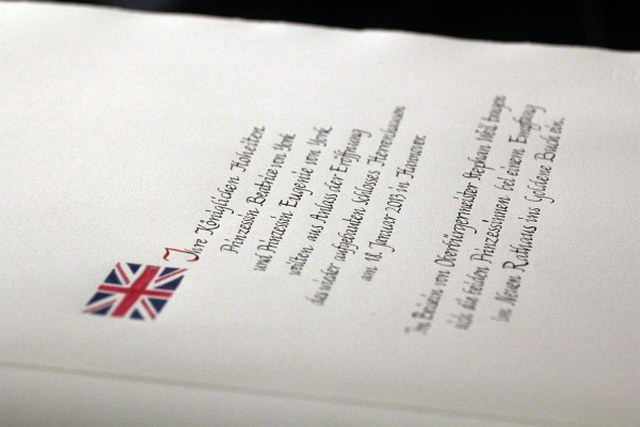 Ihre Königlichen Hoheiten
Prinzessin Beatrice von York
und Prinzessin Eugenie von York
weilten aus Anlass der Eröffnung
des wieder aufgebauten Schlosses Herrenhausen
am 18. Januar 2013 in Hannover.
Im Beisein von Oberbürgermeister Stephan Weil trugen
sich die beiden Prinzessinnen bei einem Empfang
im Neuen Rathaus ins Goldene Buch ein.